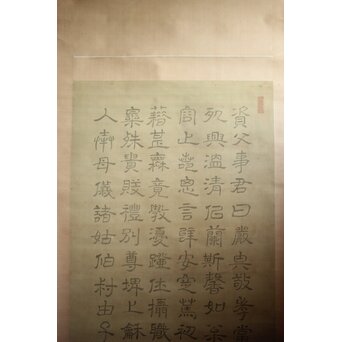 資父事君曰嚴與敬孝當
夙興溫凊似蘭斯馨如
容止若思言辭安定篤初
藉甚無竟學優登仕攝職
樂殊貴賤禮別尊卑上龢
入奉母儀諸姑伯叔猶子